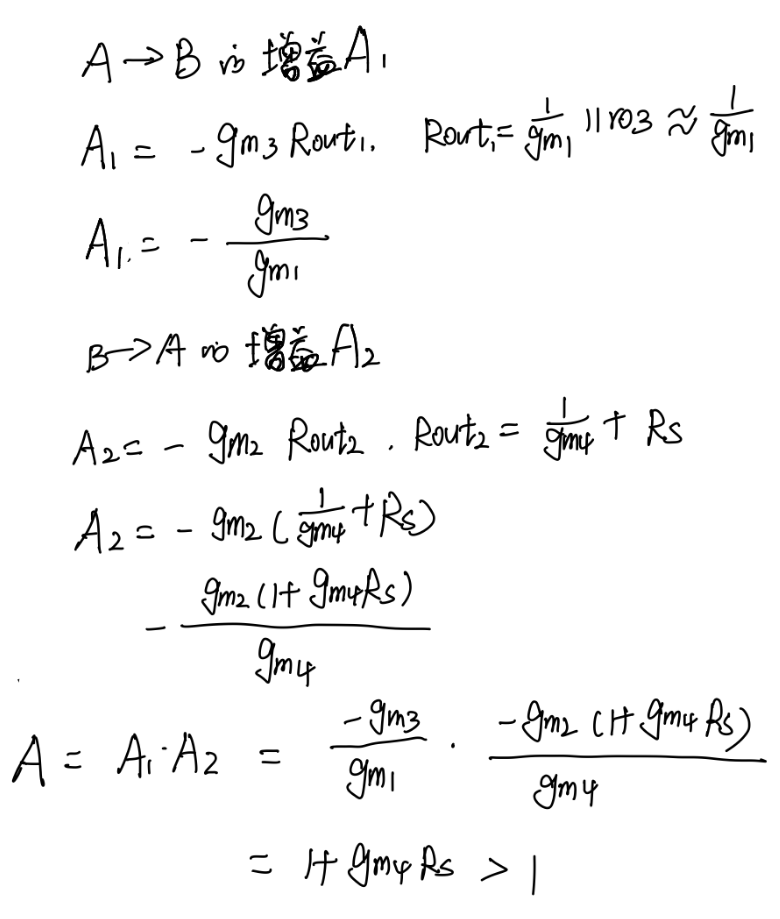 A → B 的 增益 A₁
A₁ = - gm₃ Rout₁. Rout₁ = 1/gm₁ || ro3 ≈ 1/gm₁
A₁. = - gm₃/gm₁
B → A 的 增益 A₂
A₂ = - gm₂ Rout₂ . Rout₂ = 1/gm₄ + Rs
A₂ = - gm₂ ( 1/gm₄ + Rs)
- gm₂ (1+ gm₄Rs)/gm₄
A = A₁·A₂ = -gm₃/gm₁ · -gm₂ (1+ gm₄ Rs)/gm₄
= 1+ gm₄ Rs > 1